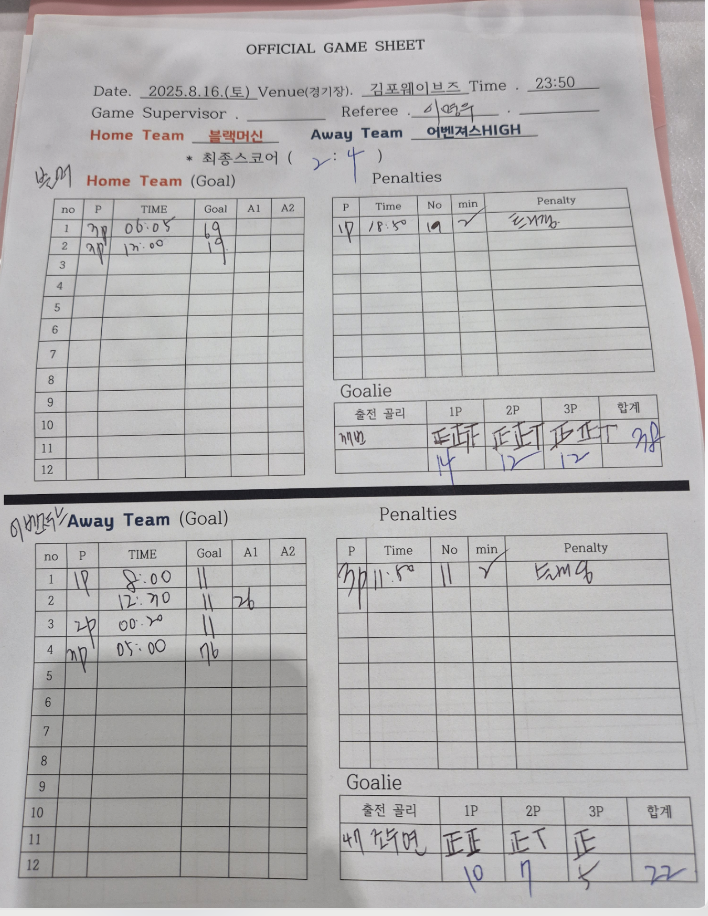 OFFICIAL GAME SHEET
Date. 2025.8.16.(토) Venue(경기장). 김포웨이브즈 Time . 23:50
Game Supervisor . Referee .
Home Team 블랙머신 Away Team 어벤져스HIGH
* 최종스코어 ( 2 : 4 )
Home Team (Goal)
no P TIME Goal A1 A2
1 3p 06:05 19
2 3p 12:00 19
3
4
5
6
7
8
9
10
11
12
Penalties
P Time No min Penalty
1P 18:50 19 2 트리핑
Goalie
출전 골리 1P 2P 3P 합계
正正正 正正T 正正T 38
14 12 12
Away Team (Goal)
no P TIME Goal A1 A2
1 1P 8:00 11
2 12:30 11 26
3 2p 00:20 11
4 3p 05:00 76
5
6
7
8
9
10
11
12
Penalties
P Time No min Penalty
3p 11:50 11 2 트리핑
Goalie
출전 골리 1P 2P 3P 합계
47 正正 正T 正
10 7 5 22